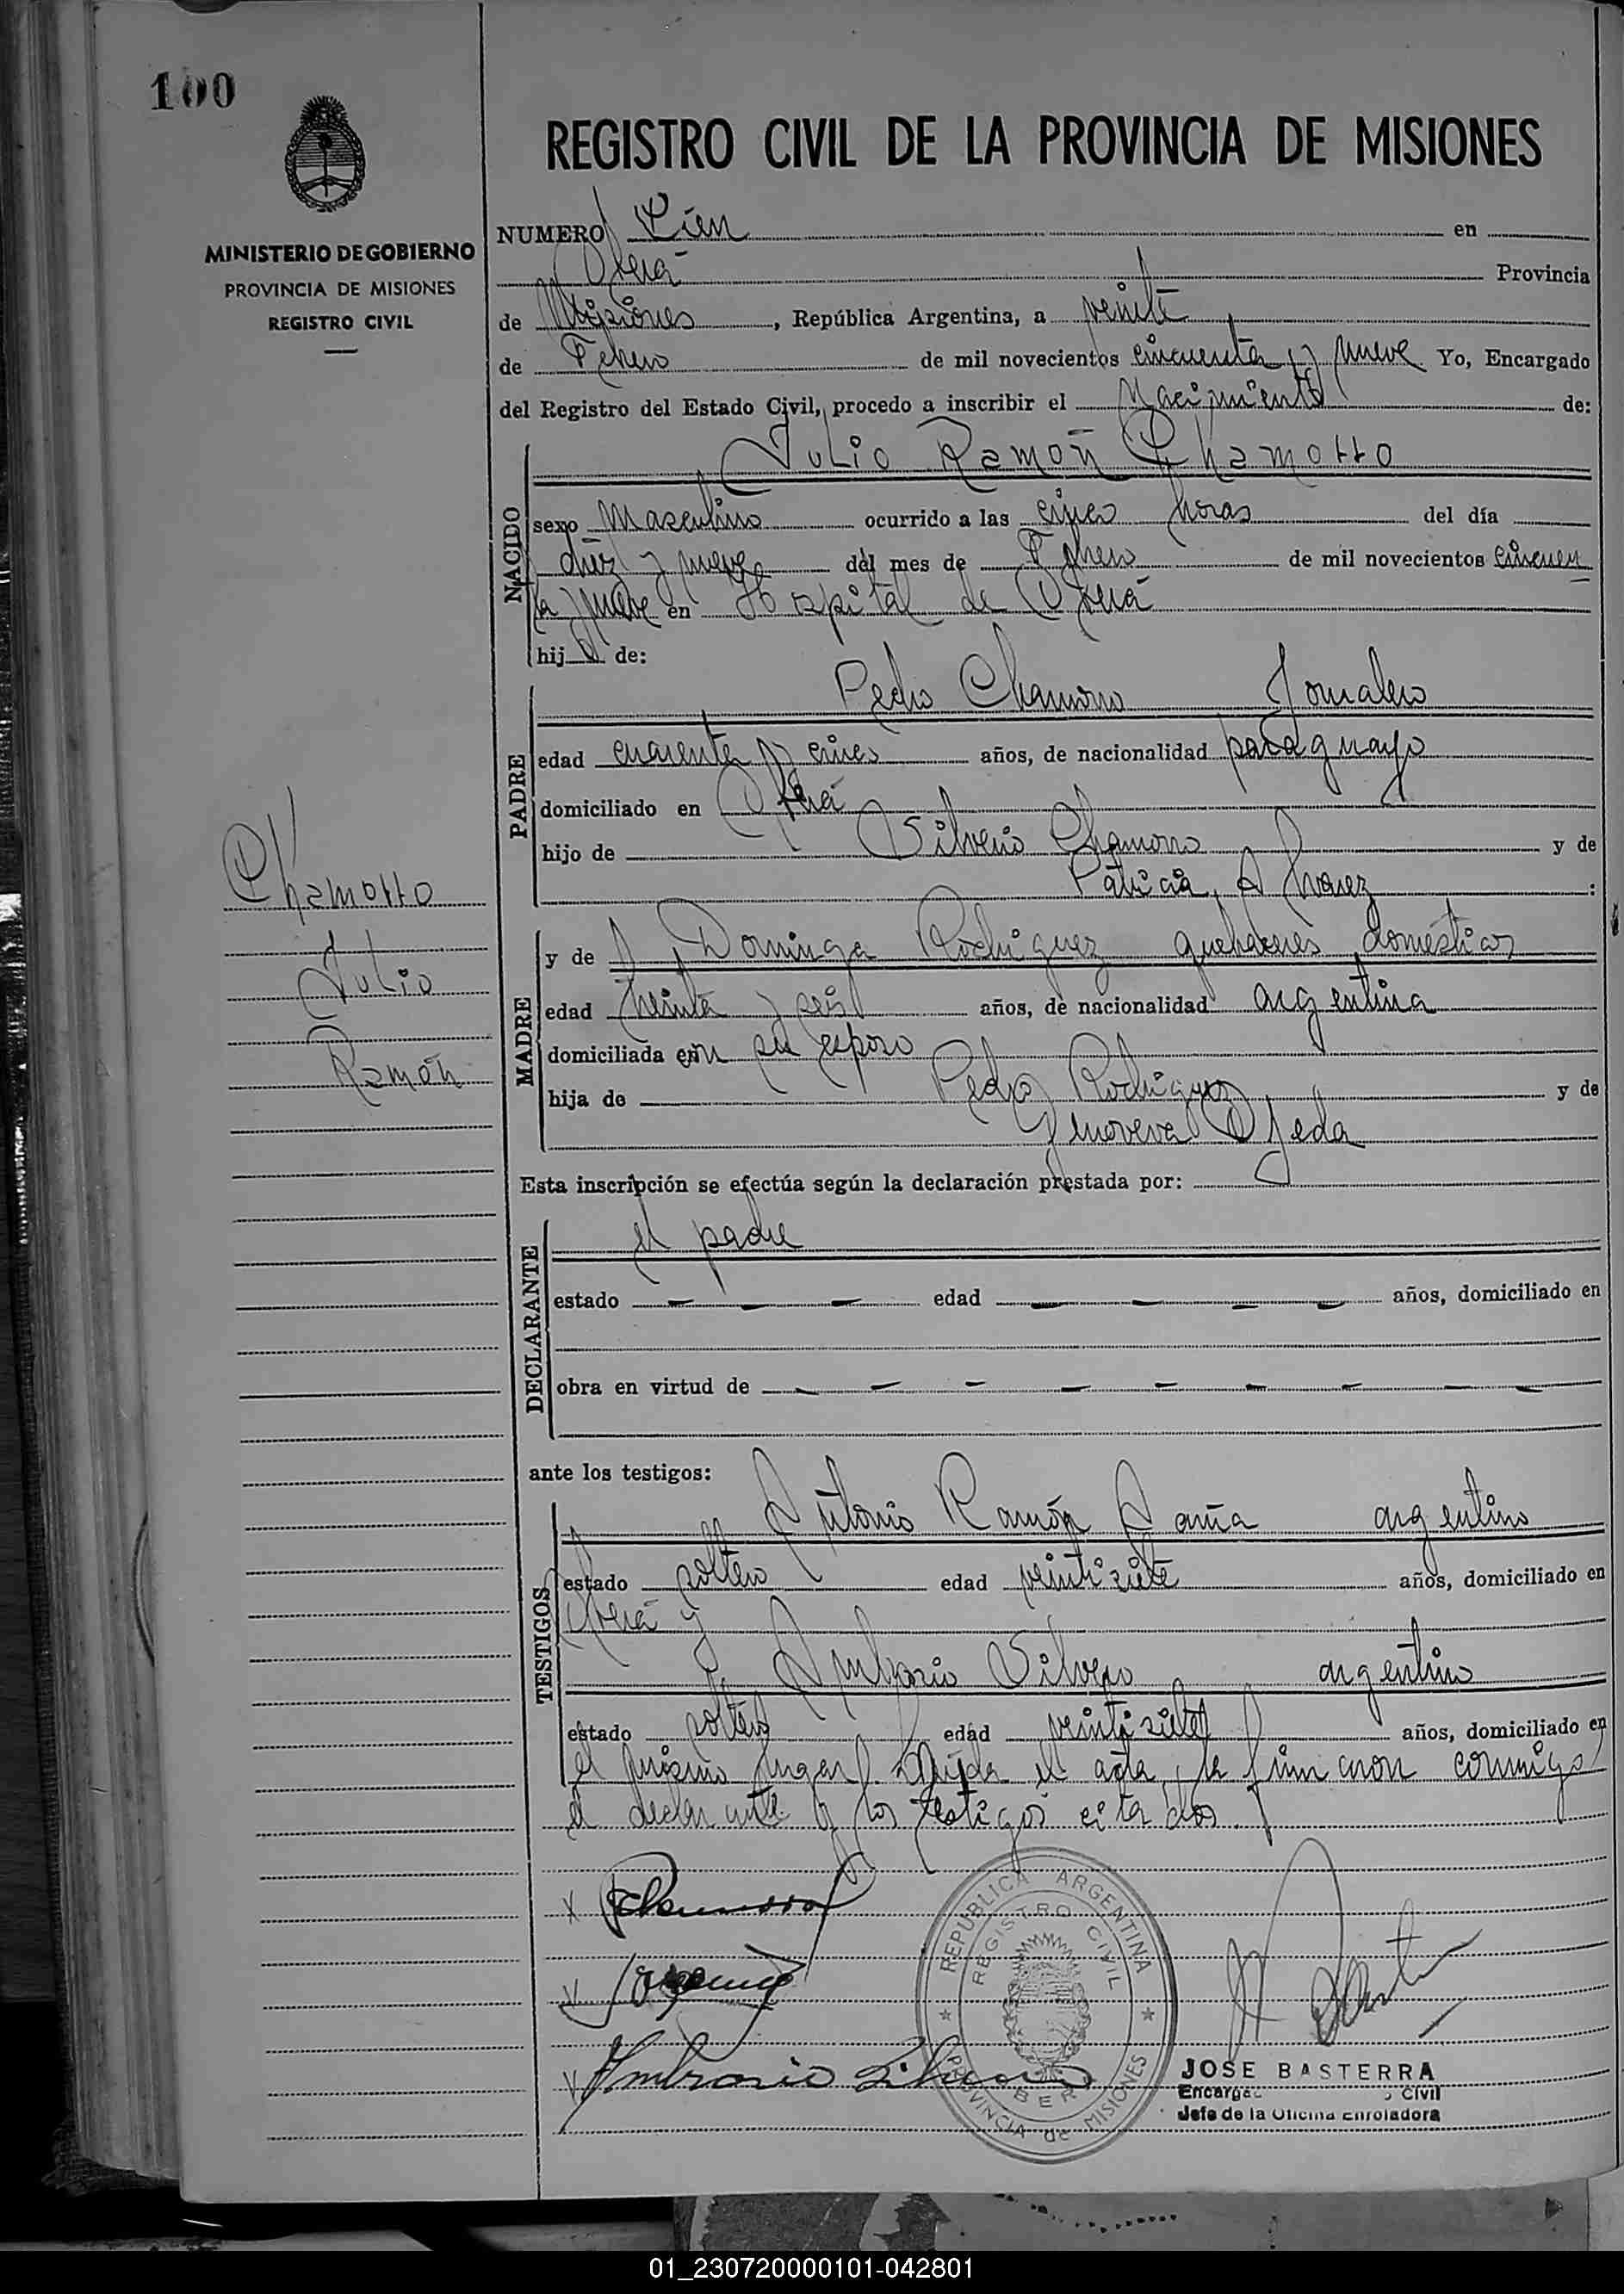 100
REGISTRO CIVIL DE LA PROVINCIA DE MISIONES
MINISTERIO DE GOBIERNO
PROVINCIA DE MISIONES
REGISTRO CIVIL
NUMERO Cien en
Oberá Provincia
de Misiones, República Argentina, a veinte
de Febrero de mil novecientos cincuenta y nueve Yo, Encargado
del Registro del Estado Civil, procedo a inscribir el Nacimiento de:
NACIDO
Julio Ramón Chamorro
sexo Masculino ocurrido a las cinco horas del día
diez y nueve del mes de Febrero de mil novecientos cincuen
ta y nueve en Hospital de Oberá
hijo de:
PADRE
Pedro Chamorro Jornalero
edad cuarenta y cinco años, de nacionalidad paraguayo
domiciliado en Oberá
hijo de Silverio Chamorro y de
Patricia Alvarez :
MADRE
y de Dominga Rodriguez quehaceres domésticos
edad treinta y seis años, de nacionalidad argentina
domiciliada con su esposo
hija de Pedro Rodriguez y de
Genoveva Ojeda
Chamorro
Julio
Ramón
Esta inscripción se efectúa según la declaración prestada por:
DECLARANTE
el padre
estado — — — edad — — — — años, domiciliado en
obra en virtud de — — — — — — — — —
ante los testigos:
TESTIGOS
Antonio Ramón argentino
estado soltero edad veintisiete años, domiciliado en
Oberá y
Ambrosio Silvero argentino
estado soltero edad veintisiete años, domiciliado en
el mismo lugar. Leída el acta, la firmaron conmigo
el declarante y los testigos citados.
PChamorro
Ambrosio Silvero
REPUBLICA ARGENTINA
REGISTRO CIVIL
OBERA
PROVINCIA de MISIONES
JOSE BASTERRA
Encargado Civil
Jefe de la Oficina Enroladora
01_230720000101-042801